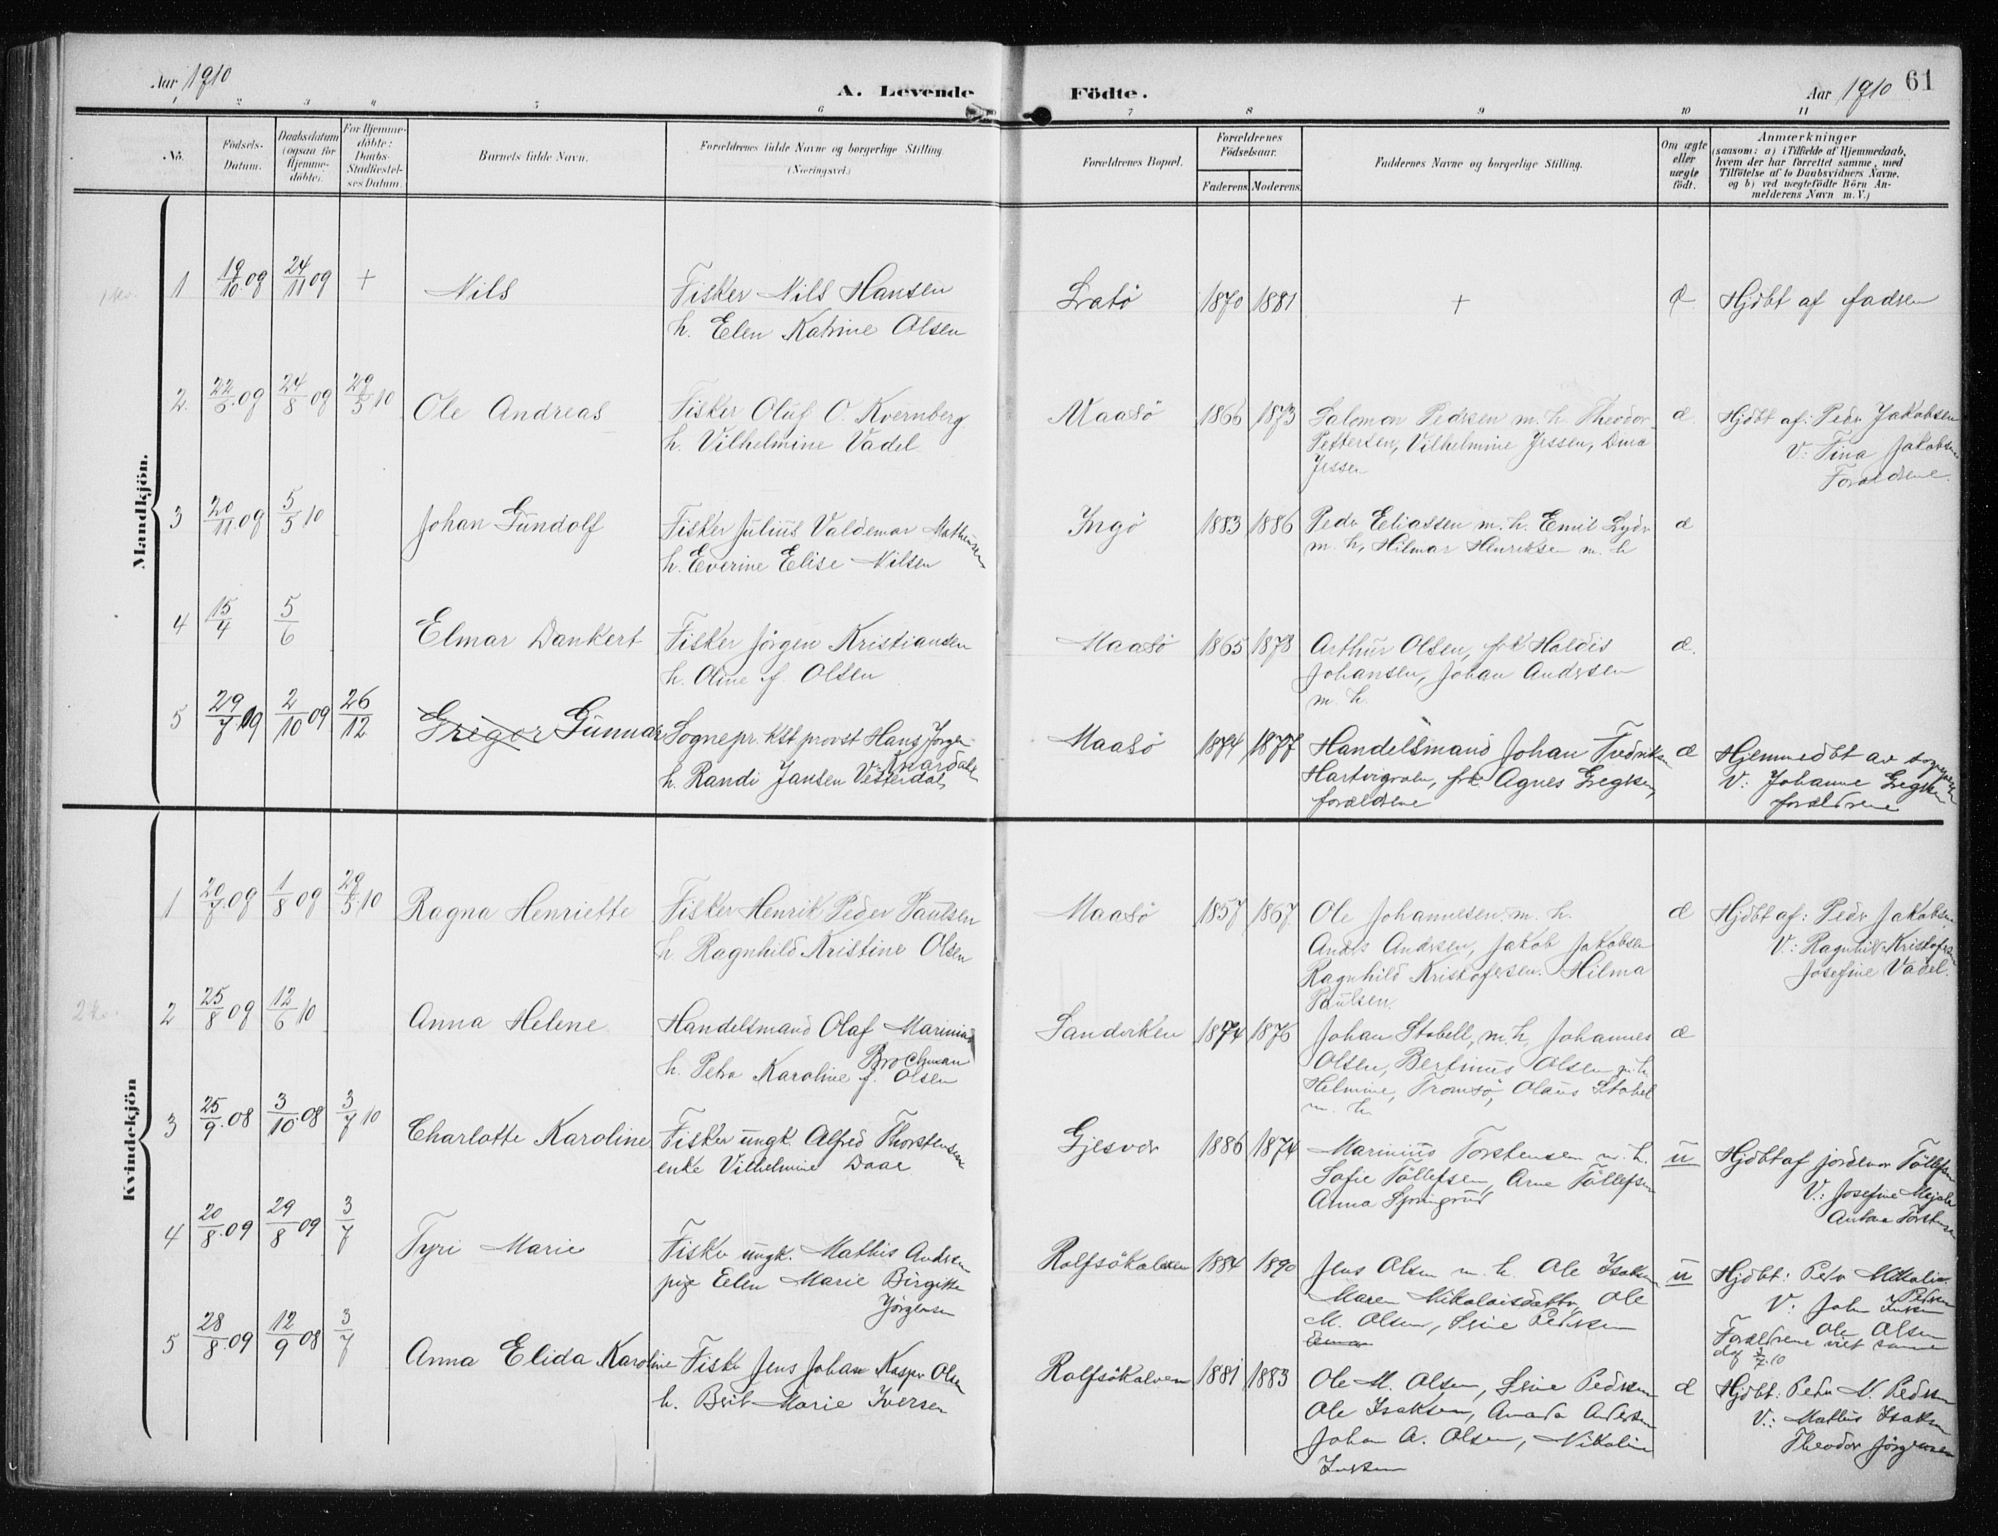 Aar 1910
A. Levende
Födte.
Aar 1910
61
1 2 3 4 5 6 7 8 9 10 11
No.
Födsels-Datum.
Daabsdatum (ogsaa for Hjemme-döbte).
For Hjemme-döbte: Daabs-Stadfæstel-ses Datum.
Barnets fulde Navn.
Forældrenes fulde Navne og borgerlige Stilling (Næringsvei.)
Forældrenes Bopæl.
Forældrenes Födselsaar.
Faderens
Moderens
Faddernes Navne og borgerlige Stilling.
Om ægte eller uægte födt.
Anmærkninger
(saasom: a) i Tilfælde af Hjemmedaab, hvem der har forrettet samme, med Tilföielse af to Daabsvidners Navne, og b) ved uægtefödte Börn An-melderens Navn m. V.)
Mandkjön.
1 19/10.09 24/11 09 + Nils
Fisker Nils Hansen
h. Elen Katrine Olsen
1870 1881 + Hjdbt af fadren
2. 22/6.09 24/8 09 29/5 10 Ole Andreas
Fisker Oluf O. Kvernberg
h. Vilhelmine Vadel
Maasö 1866 1873
Salomon Pedrsen m. h. Theodor
Pettersen, Vilhelmine Jessen, Dina
Jessen
æ. Hjdbt af: Pedr Jakobsen
V: Tina Jakobsen
Forældrene.
3 20/11.09 5/5 10 Johan Gundolf
Fisker Julius Valdemar Mathisen
h. Everine Elise Nilsen
Ingö 1883 1886
Pedr Eliassen m. h. Emil Lydr
m. h, Hilmar Henriksen m. h
æ
4 15/4 5/6 Elmar Dankert
Fisker Jörgen Kristiansen
h. Oline f. Olsen
Maasö 1865 1878
Arthur Olsen, frk Haldis
Johansen, Johan Andrsen
m. h.
æ.
5 29/7 09 2/10 09 26/12 Gregor Gunnar
Sognepr. kst provst Hans Jörgen
Kvardal
h. Randi Jansen Vesterdal,
Maasö 1874 1877
Handelsmand Johan Fredriksen
Hartvigsen, frk Agnes Gregrsen,
forældrene
æ Hjemmedbt av sognepr
V: Johanne Gregrsen
forældrene
Kvindekjön
1 20/7.09 1/8 09 29/5.10 Ragna Henriette
Fisker Henrik Peder Paulsen
h. Ragnhild Kristine Olsen
Maasö 1857 1867
Ole Johannesen m. h.
Andrs Andrsen, Jakob Jakobsen
Ragnhild Kristofersen. Hilma
Paulsen.
æ Hjdbt af: Pedr Jakobsen
V: Ragnhild Kristofersen
Josefine Vadel.
2 ko.
2 25/8 09 12/6 10 Anna Helene
Handelsmand Olaf Marinius
Brochman
h. Petra Karoline f. Olsen
1874 1876
Johan Stabell, m. h, Johannes
Olsen, Bertinus Olsen m. h.
Helmine, Tromsö, Olaus Stabel
m. h.
æ
3 25/9.08 3/10.08 3/7 10 Charlotte Karoline
Fisker ungk. Alfred Thorstensen
enke Vilhelmine Daae
Gjesvær 1886 1874
Marinius Torstensen m. h.
Sofie Töllefsen, Arne Töllefsen
Anna Springrud
u Hjdbt af jordmor Töllefsen
V: Josefine
4 20/8.09 29/8 09 3/7 Tyri Marie
Fisker ungk. Mathis Andrsen
pige Elen Marie Birgitte
Jörgensen
Rolfsökalven 1884 1890
Jens Olsen m. h Ole Isaksen
Maren Nikolaisdatter, Ole
M. Olsen, Seine Pedrsen
u Hjdbt: Petr Nikolai
Pedrsen
V: John Iversen
Ole Olsen
Forældrene viet samme
dag 3/7.10
5 28/8.09 12/9 08 3/7 Anna Elida Karoline
Fisker Jens Johan Kaspr Olsen
h. Berit Marie Iversen
Rolfsökalven 1881 1883
Ole M. Olsen, Seine Pedrsen
Ole Isaksen, Amanda Andersen
Johan A. Olsen, Nikoline
Iversen
æ Hjdbt: Petr N. Pedrsen
V: Mathis Isaksen
Theodor Jörgensen